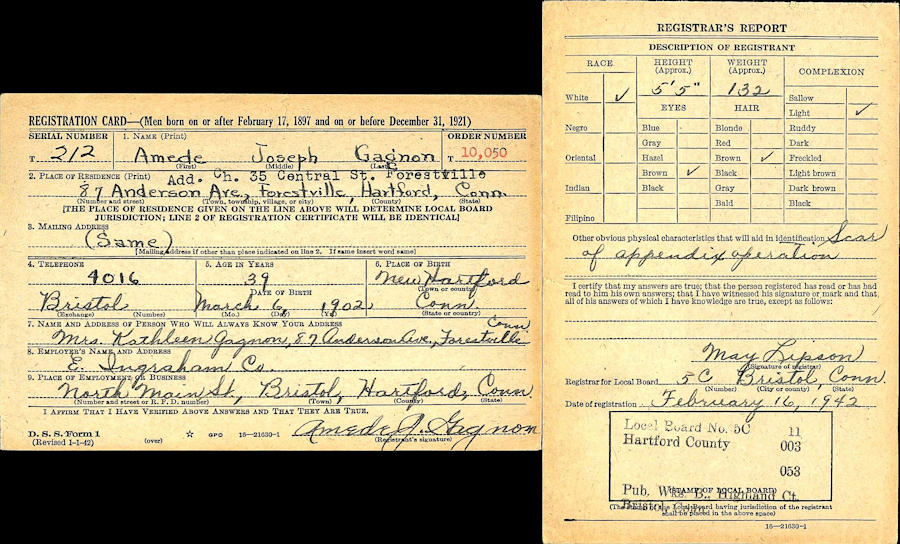 REGISTRATION CARD—(Men born on or after February 17, 1897 and on or before December 31, 1921)
SERIAL NUMBER 1. NAME (Print) ORDER NUMBER
T 212 Amede Joseph Gagnon T 10,050
(First) (Middle) (Last)
Add. Ch. 35 Central St. Forestville
2. PLACE OF RESIDENCE (Print)
87 Anderson Ave., Forestville, Hartford, Conn.
(Number and street) (Town, township, village, or city) (County) (State)
[THE PLACE OF RESIDENCE GIVEN ON THE LINE ABOVE WILL DETERMINE LOCAL BOARD
JURISDICTION; LINE 2 OF REGISTRATION CERTIFICATE WILL BE IDENTICAL]
3. MAILING ADDRESS
(Same)
[Mailing address if other than place indicated on line 2. If same insert word same]
4. TELEPHONE 5. AGE IN YEARS 6. PLACE OF BIRTH
4016 39 New Hartford
DATE OF BIRTH (Town or county)
Bristol March 6 1902 Conn
(Exchange) (Number) (Mo.) (Day) (Yr.) (State or country)
7. NAME AND ADDRESS OF PERSON WHO WILL ALWAYS KNOW YOUR ADDRESS Conn
Mrs. Kathleen Gagnon, 87 Anderson Ave., Forestville
8. EMPLOYER'S NAME AND ADDRESS
E. Ingraham Co.
9. PLACE OF EMPLOYMENT OR BUSINESS
North Main St., Bristol, Hartford, Conn
(Number and street or R. F. D. number) (Town) (County) (State)
I AFFIRM THAT I HAVE VERIFIED ABOVE ANSWERS AND THAT THEY ARE TRUE.
D. S. S. Form 1
(Revised 1-1-42) (over) GPO 16—21630-1 Amede J. Gagnon
(Registrant's signature)
REGISTRAR'S REPORT
DESCRIPTION OF REGISTRANT
RACE HEIGHT (Approx.) WEIGHT (Approx.) COMPLEXION
5' 5" 132
White ✓ EYES HAIR Sallow
Light ✓
Negro Blue Blonde Ruddy
Gray Red Dark
Oriental Hazel Brown ✓ Freckled
Brown ✓ Black Light brown
Indian Black Gray Dark brown
Bald Black
Filipino
Other obvious physical characteristics that will aid in identification Scar
of appendix operation
I certify that my answers are true; that the person registered has read or has had
read to him his own answers; that I have witnessed his signature or mark and that
all of his answers of which I have knowledge are true, except as follows:
May Lipson
(Signature of registrar)
Registrar for Local Board 5C Bristol, Conn.
(Number) (City or county) (State)
Date of registration February 16, 1942
Local Board No. 5C 11
Hartford County 003
053
Pub. Wks. B., Highland Ct.
(STAMP OF LOCAL BOARD)
Bristol, Conn.
(The stamp of the Local Board having jurisdiction of the registrant
shall be placed in the above space)
16—21630-1